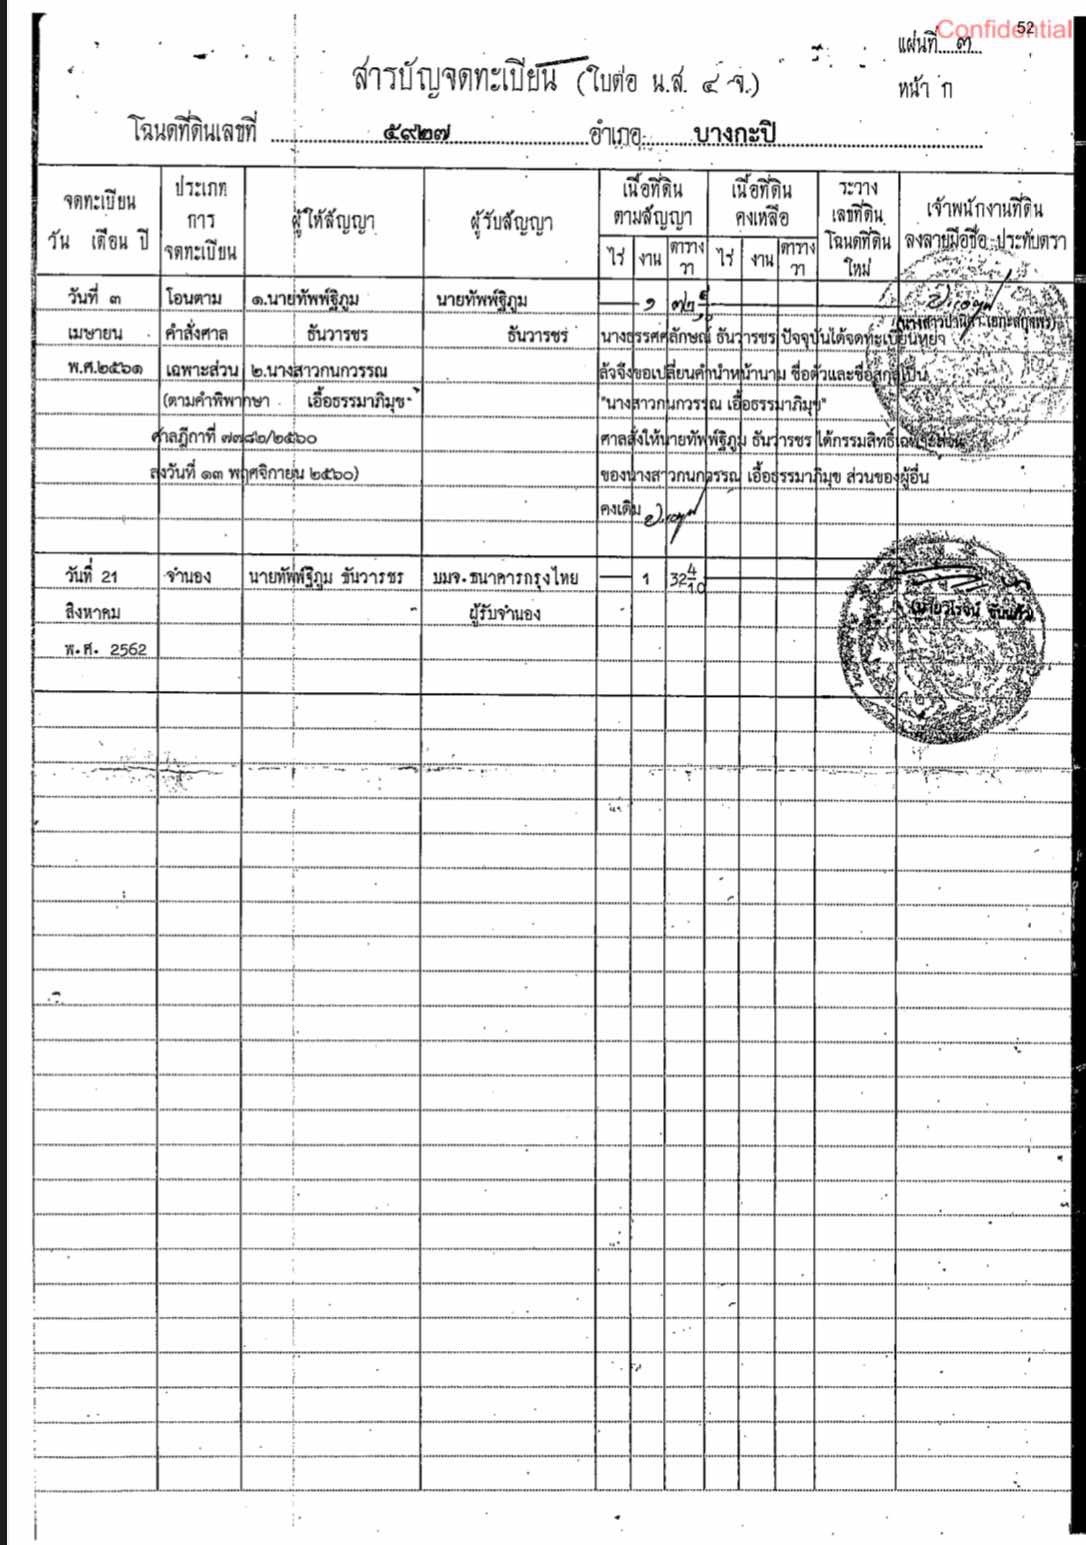 Confidential
52
แผ่นที่ ๓
สารบัญจดทะเบียน (ใบต่อ น.ส. ๔ จ.)
หน้า ก
โฉนดที่ดินเลขที่ ๕๙๒๗ อำเภอ บางกะปิ
จดทะเบียน วัน เดือน ปี
ประเภทการจดทะเบียน
ผู้ให้สัญญา
ผู้รับสัญญา
เนื้อที่ดินตามสัญญา
เนื้อที่ดินคงเหลือ
ระวาง เลขที่ดิน โฉนดที่ดินใหม่
เจ้าพนักงานที่ดิน ลงลายมือชื่อ ประทับตรา
ไร่ งาน ตารางวา ไร่ งาน ตารางวา
วันที่ ๓ โอนตาม ๑.นายทัพพ์ฐิภูม นายทัพพ์ฐิภูม ๑ ๓๒
เมษายน คำสั่งศาล ธันวารชร ธันวารชร นางธรรศศลักษณ์ ธันวารชร ปัจจุบันได้จดทะเบียนหย่า
พ.ศ.๒๕๖๑ เฉพาะส่วน ๒.นางสาวกนกวรรณ ล้วจึงขอเปลี่ยนคำนำหน้านาม ชื่อตัวและชื่อสกุลเป็น
(ตามคำพิพากษา เอื้อธรรมาภิมุข "นางสาวกนกวรรณ เอื้อธรรมาภิมุข"
ศาลฎีกาที่ ๗๗๘๖/๒๕๖๐ ศาลสั่งให้นายทัพพ์ฐิภูม ธันวารชร ได้กรรมสิทธิ์เฉพาะส่วน
ลงวันที่ ๑๓ พฤศจิกายน ๒๕๖๐) ของนางสาวกนกวรรณ เอื้อธรรมาภิมุข ส่วนของผู้อื่น
คงเดิม
วันที่ 21 จำนอง นายทัพพ์ฐิภูม ธันวารชร บมจ.ธนาคารกรุงไทย 1 32 4/10
สิงหาคม ผู้รับจำนอง
พ.ศ. 2562